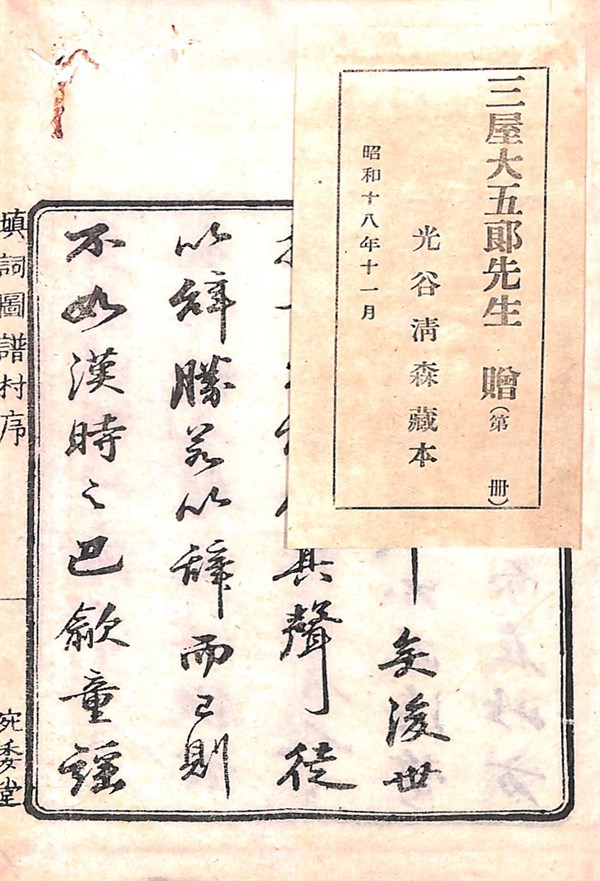 三屋大五郞先生 贈(第 冊)
光谷淸森藏本
昭和十八年十一月
矣後世
其聲徒
以辭勝若以辭而已則
不如漢時之巴歈童謡
塡詞圖譜村序
宛委堂